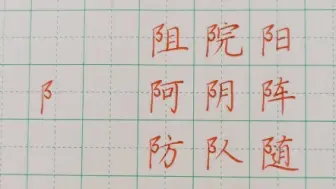 阝
阻院阳
阿阴阵
防队随